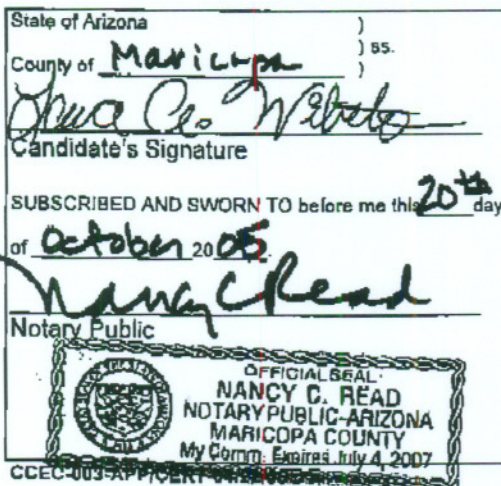 State of Arizona )
) ss.
County of Maricopa )
Candidate's Signature
SUBSCRIBED AND SWORN TO before me this 20th day
of October 2005
Nancy C Read
Notary Public
OFFICIAL SEAL
NANCY C. READ
NOTARY PUBLIC-ARIZONA
MARICOPA COUNTY
My Comm. Expires July 4, 2007
CCEC-003-APP/CERT